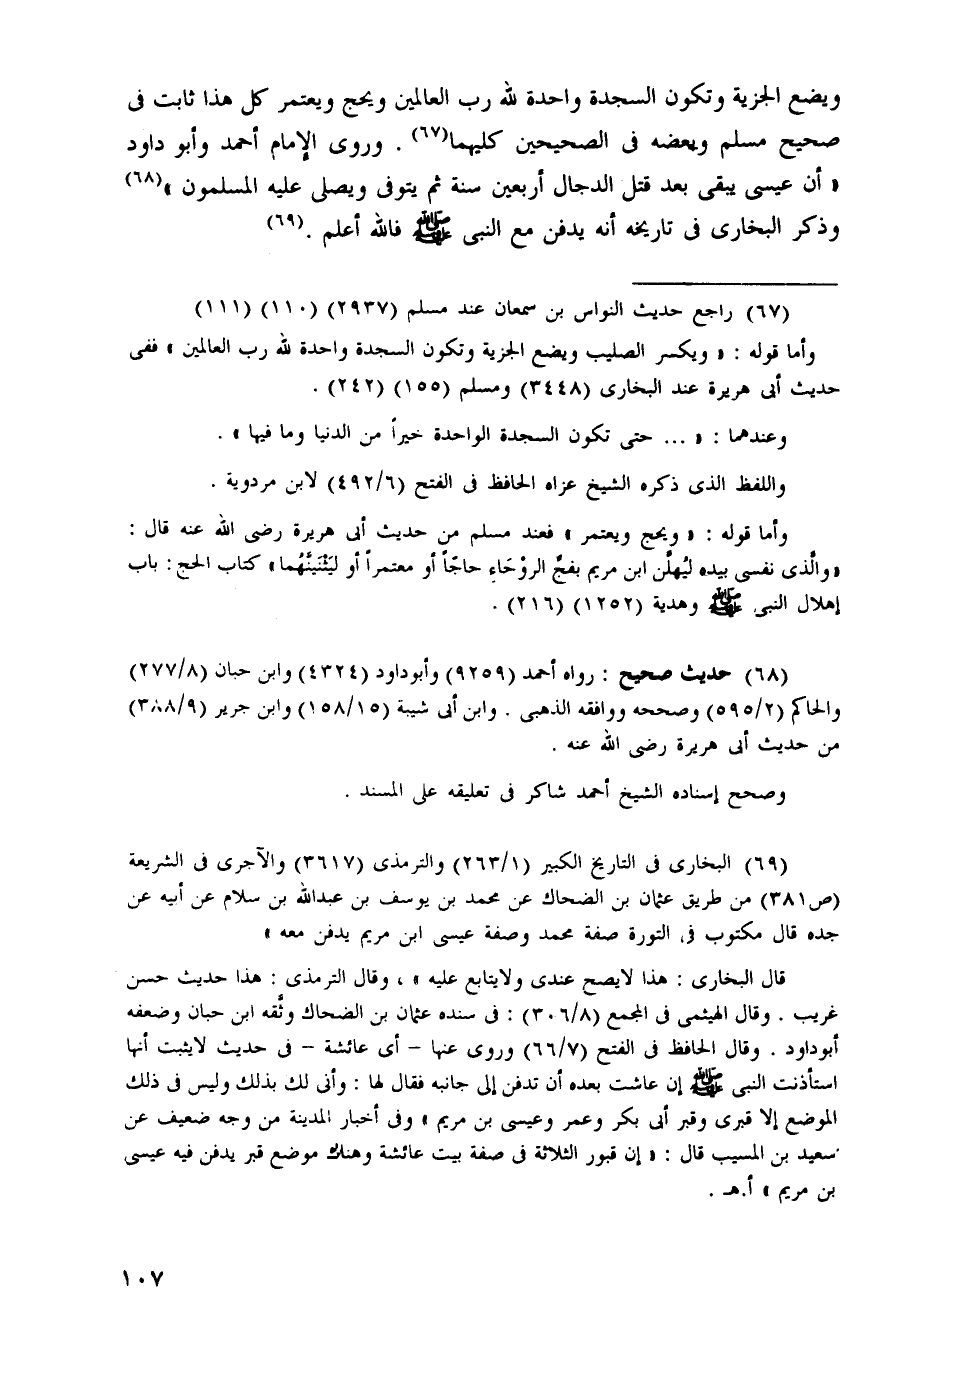 ويضع الجزية وتكون السجدة واحدة لله رب العالمين ويحج ويعتمر كل هذا ثابت فى
صحيح مسلم وبعضه فى الصحيحين كليهما(٦٧) . وروى الإمام أحمد وأبو داود
« أن عيسى يبقى بعد قتل الدجال أربعين سنة ثم يتوفى ويصلى عليه المسلمون »(٦٨)
وذكر البخارى فى تاريخه أنه يدفن مع النبى ﷺ فالله أعلم .(٦٩)
(٦٧) راجع حديث النواس بن سمعان عند مسلم (٢٩٣٧) (١١٠) (١١١)
وأما قوله : « ويكسر الصليب ويضع الجزية وتكون السجدة واحدة لله رب العالمين » ففى
حديث أبى هريرة عند البخارى (٣٤٤٨) ومسلم (١٥٥) (٢٤٢) .
وعندهما : « ... حتى تكون السجدة الواحدة خيراً من الدنيا وما فيها » .
واللفظ الذى ذكره الشيخ عزاه الحافظ فى الفتح (٤٩٢/٦) لابن مردوية .
وأما قوله : « ويحج ويعتمر » فعند مسلم من حديث أبى هريرة رضى الله عنه قال :
«والَّذى نفسى بيده ليُهلَّن ابن مريم بفجِّ الروْحَاءِ حاجّاً أو معتمراً أو لَيَثْنَيَنَّهُما» كتاب الحج : باب
إهلال النبى ﷺ وهدية (١٢٥٢) (٢١٦) .
(٦٨) حديث صحيح : رواه أحمد (٩٢٥٩) وأبوداود (٤٣٢٤) وابن حبان (٢٧٧/٨)
والحاكم (٥٩٥/٢) وصححه ووافقه الذهبى . وابن أبى شيبة (١٥٨/١٥) وابن جرير (٣٨٨/٩)
من حديث أبى هريرة رضى الله عنه .
وصحح إسناده الشيخ أحمد شاكر فى تعليقه على المسند .
(٦٩) البخارى فى التاريخ الكبير (٢٦٣/١) والترمذى (٣٦١٧) والآجرى فى الشريعة
(ص٣٨١) من طريق عثمان بن الضحاك عن محمد بن يوسف بن عبدالله بن سلام عن أبيه عن
جده قال مكتوب فى التورة صفة محمد وصفة عيسى ابن مريم يدفن معه »
قال البخارى : هذا لايصح عندى ولايتابع عليه » ، وقال الترمذى : هذا حديث حسن
غريب . وقال الهيثمى فى المجمع (٣٠٦/٨) : فى سنده عثمان بن الضحاك وثَّقه ابن حبان وضعفه
أبوداود . وقال الحافظ فى الفتح (٦٦/٧) وروى عنها – أى عائشة – فى حديث لايثبت أنها
استأذنت النبى ﷺ إن عاشت بعده أن تدفن إلى جانبه فقال لها : وأنى لك بذلك وليس فى ذلك
الموضع إلا قبرى وقبر أبى بكر وعمر وعيسى بن مريم » وفى أخبار المدينة من وجه ضعيف عن
سعيد بن المسيب قال : « إن قبور الثلاثة فى صفة بيت عائشة وهناك موضع قبر يدفن فيه عيسى
بن مريم » أ.هـ .
١٠٧